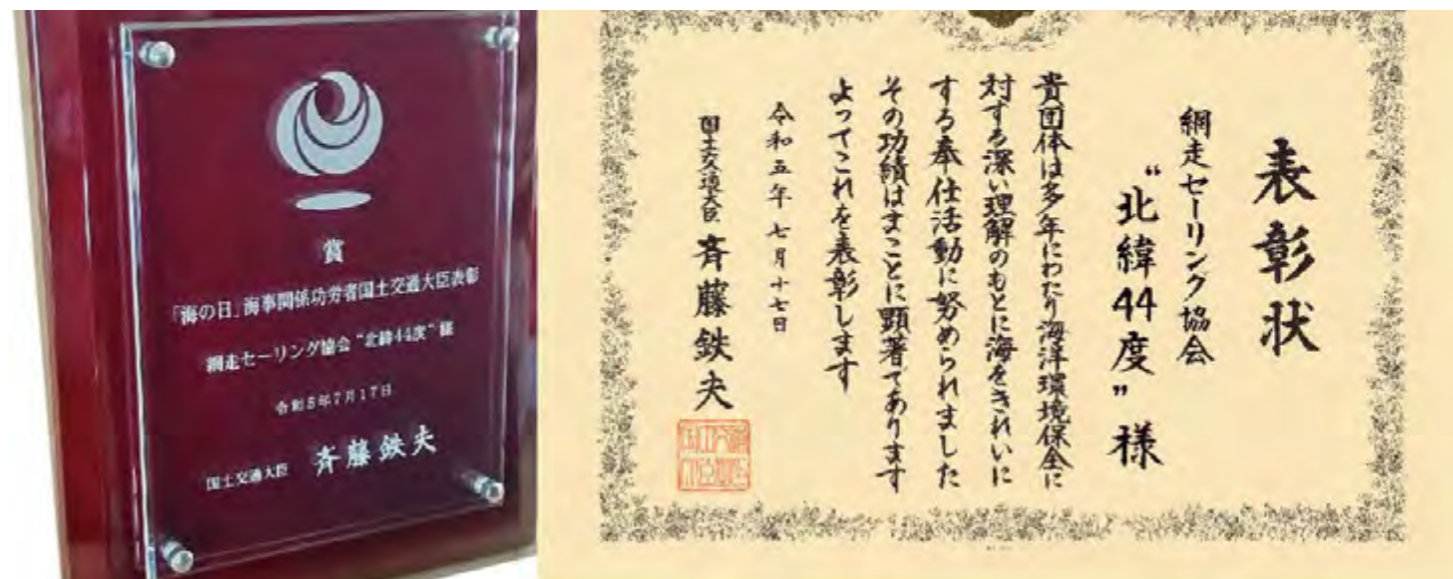 賞
「海の日」海事関係功労者国土交通大臣表彰
網走セーリング協会“北緯44度”様
令和5年7月17日
国土交通大臣 斉藤鉄夫
表彰状
網走セーリング協会
“北緯44度”様
貴団体は多年にわたり海洋環境保全に
対する深い理解のもとに海をきれいに
する奉仕活動に努められました
その功績はまことに顕著であります
よってこれを表彰します
令和五年七月十七日
国土交通大臣 斉藤鉄夫